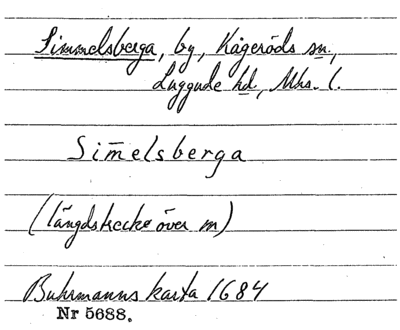 Simmelsberga, by, Kågeröds sn.,
Luggude hd, Mhs. l.
Sim̄elsberga
(längdstrecke över m)
Buhrmanns karta 1684
Nr 5688.